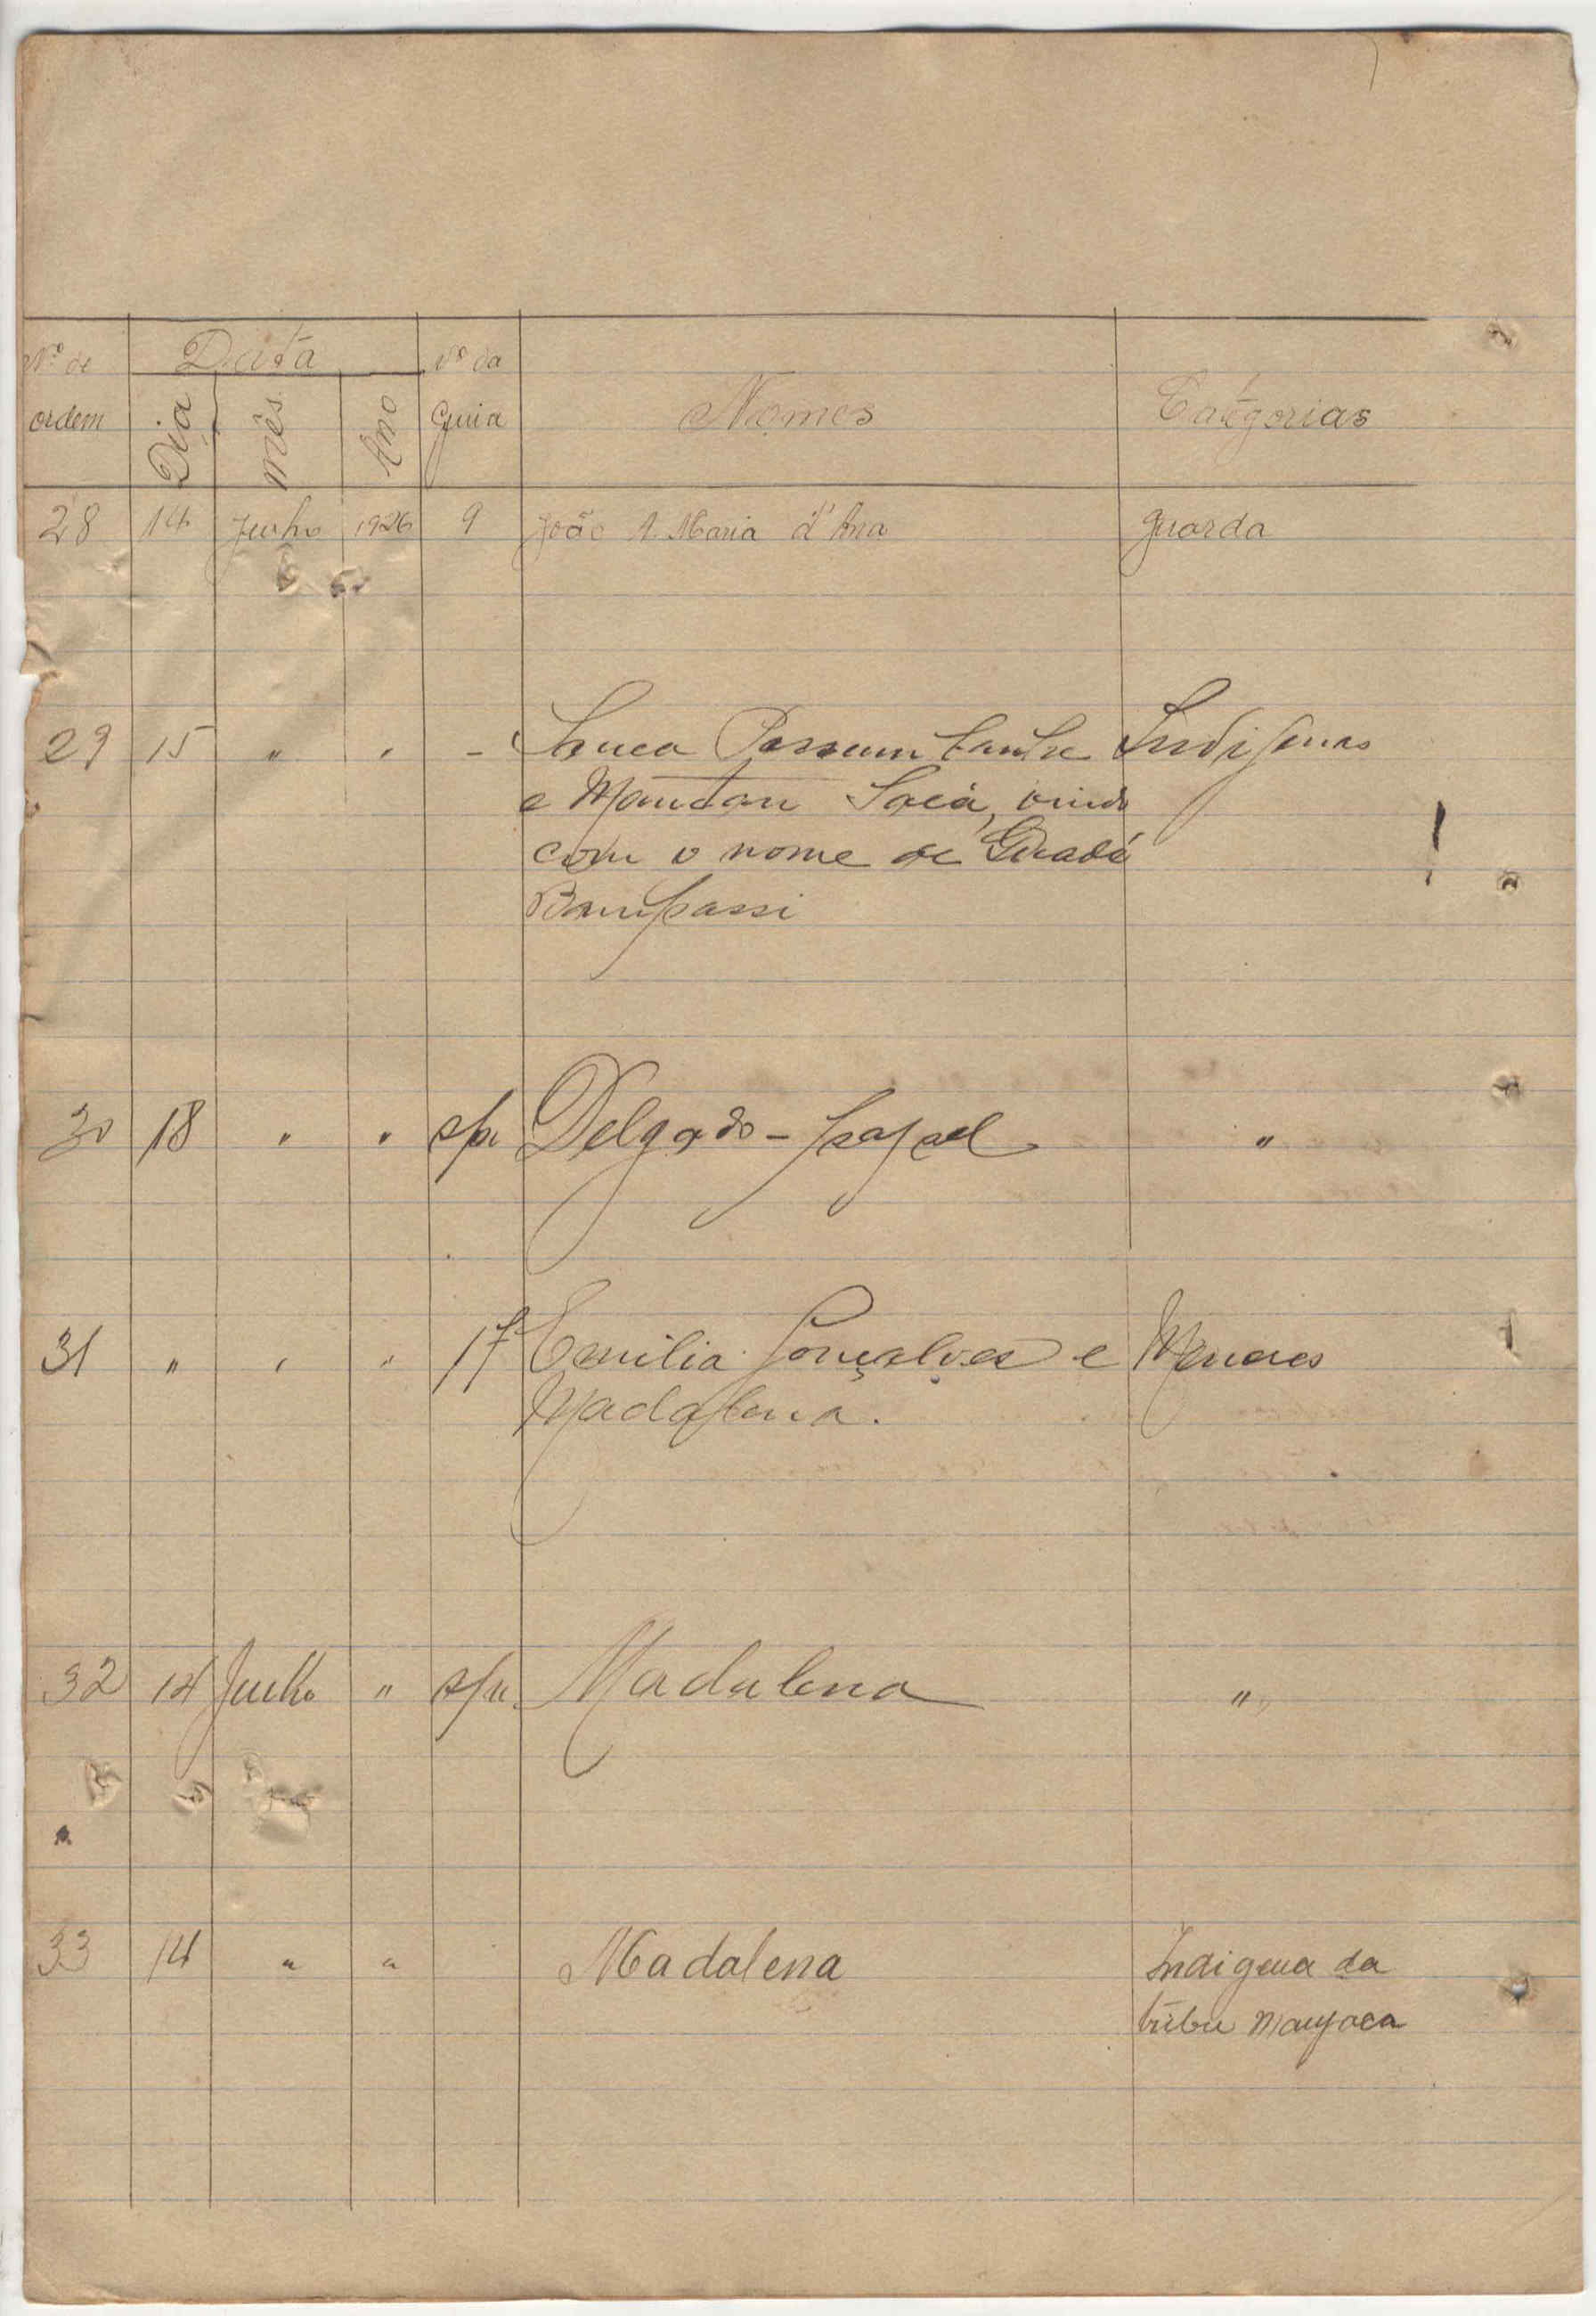 Nº de Data Nº da
ordem Dia mês Ano Guia Nomes Categorias
28 14 Junho 1926 9 João A. Maria d'Ana guarda
29 15 " " - Indigenas
e Mandan vindo
com o nome de
Bampassi
30 18 " " s/n Delgado - "
31 " " " 17 Emilia Gonçalves e Menores
Madalena.
32 14 Julho " s/n. Madalena "
33 14 " " Madalena Indigena da
tribu manjaca